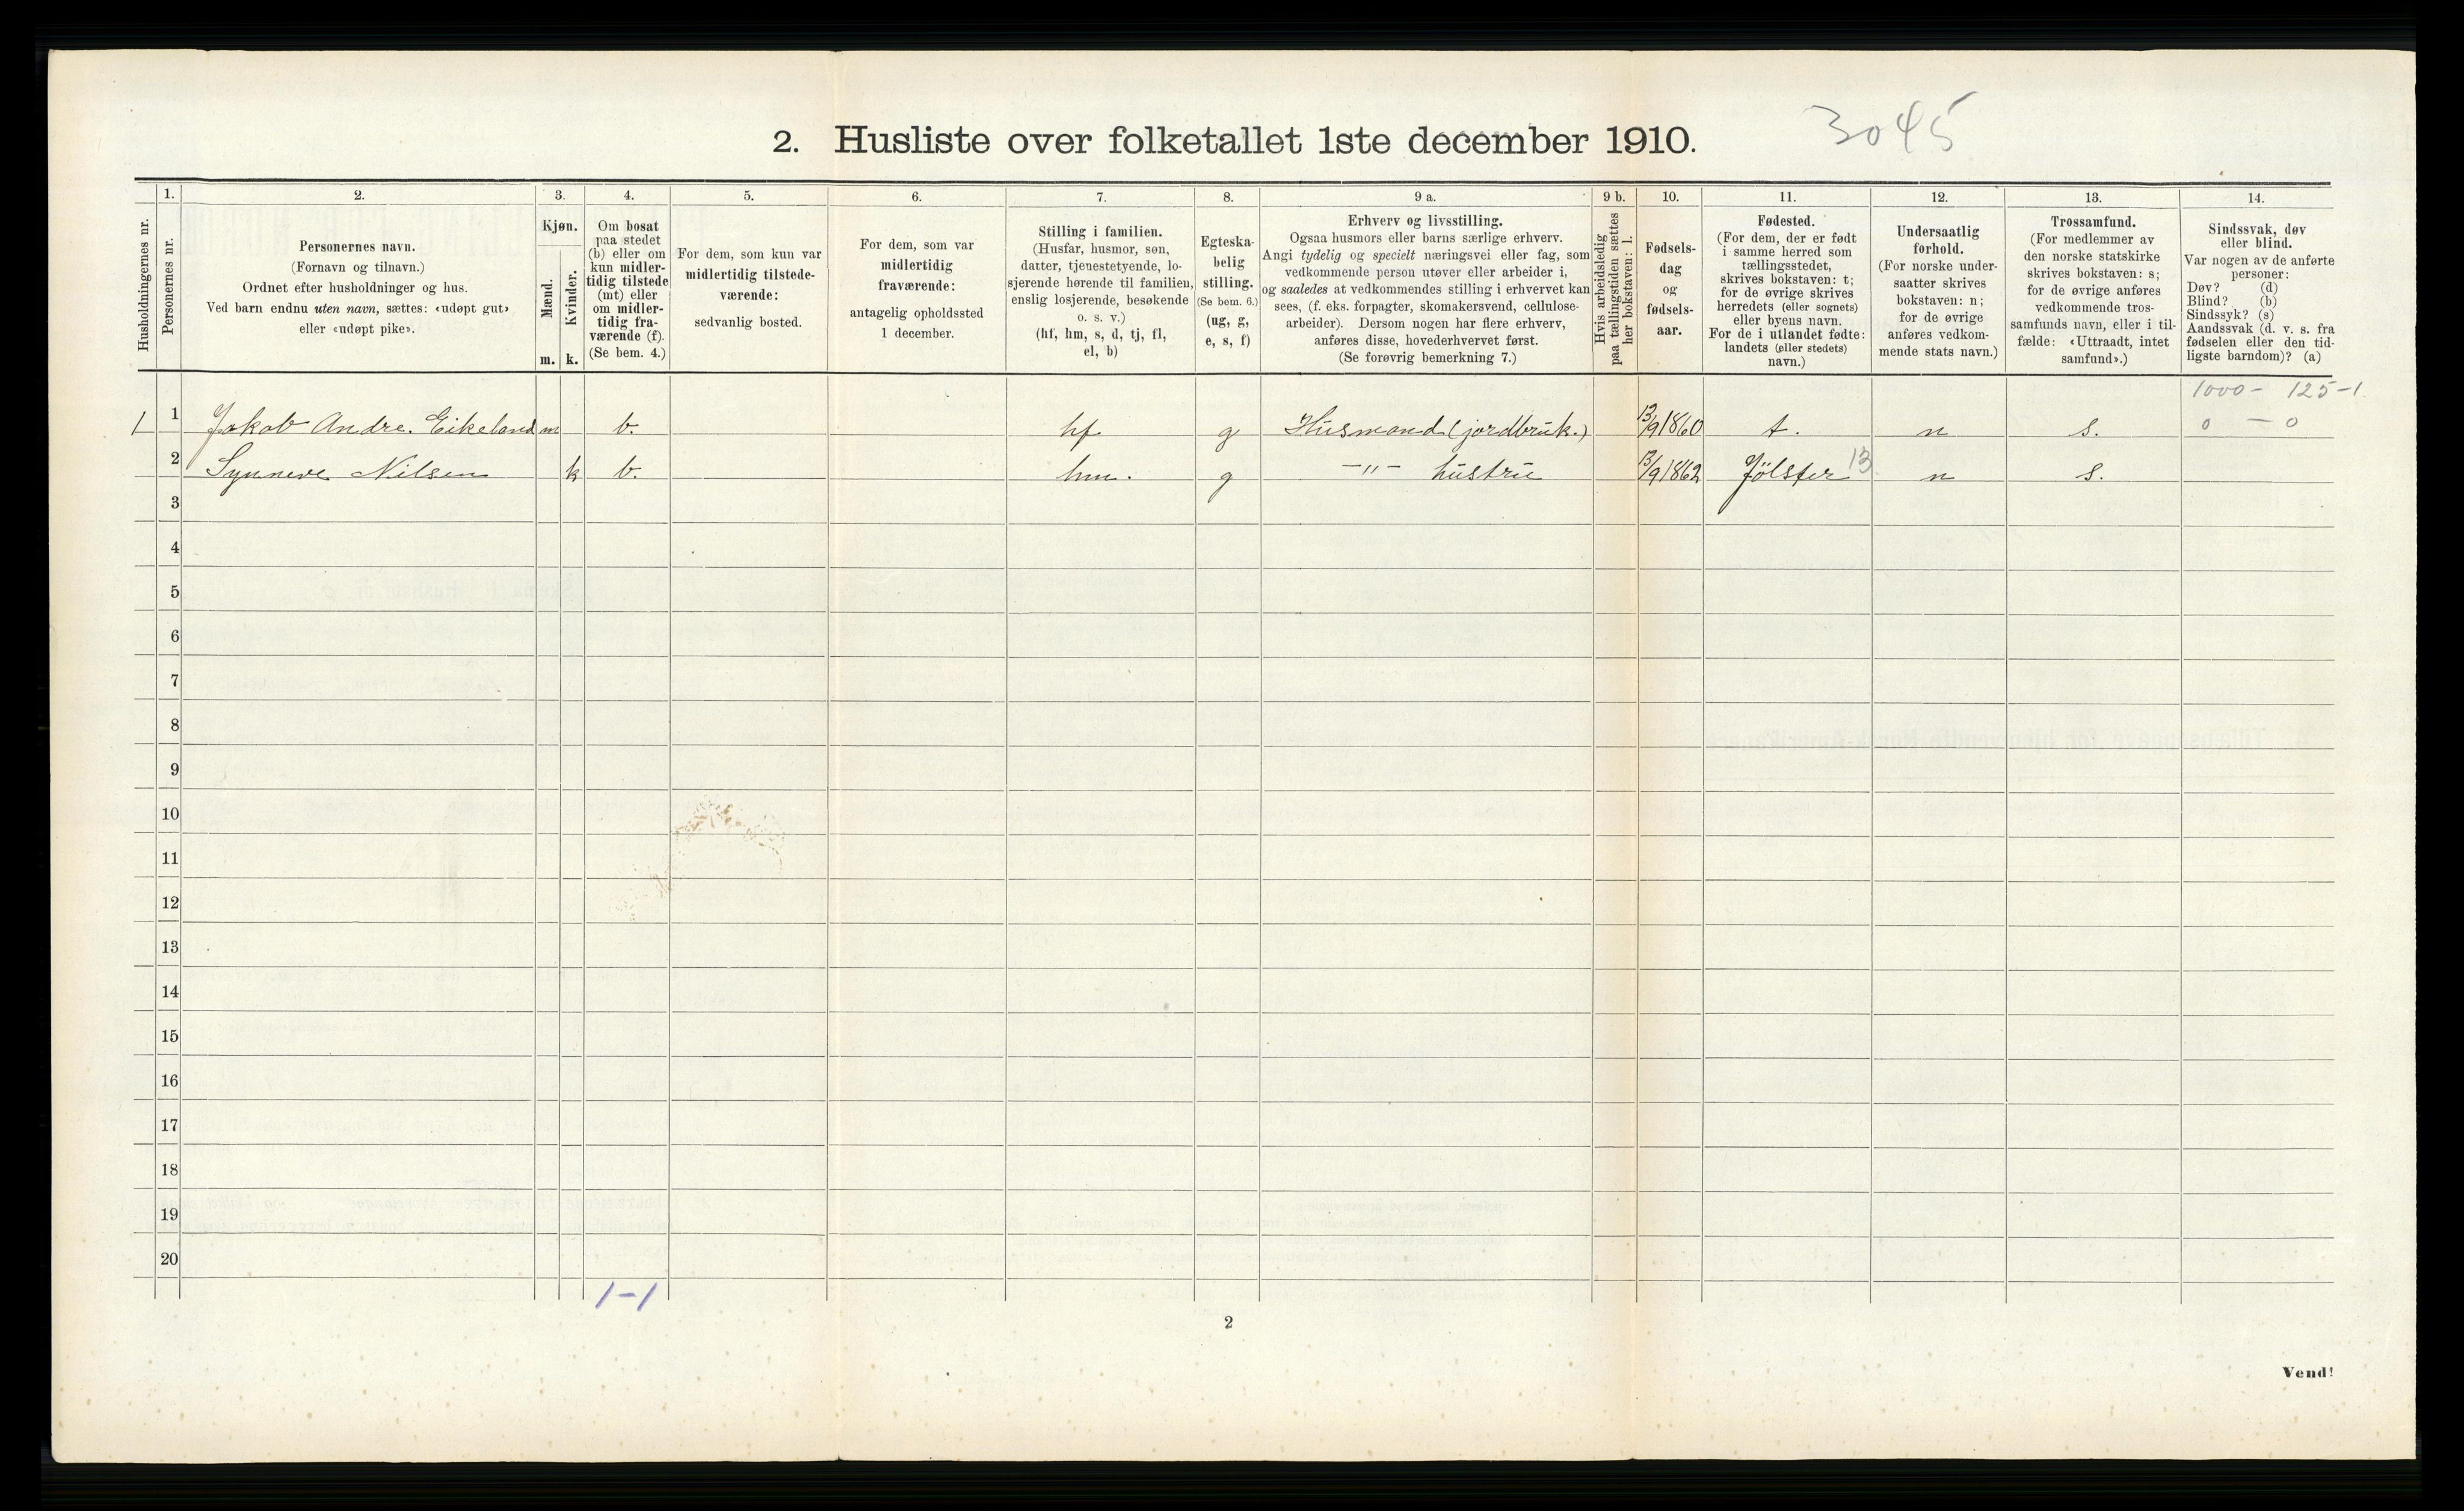 2. Husliste over folketallet 1ste december 1910.
3045
Husholdningernes nr.
1.
Personernes nr.
2.
Personernes navn.
(Fornavn og tilnavn.)
Ordnet efter husholdninger og hus.
Ved barn endnu uten navn, sættes: «udøpt gut»
eller «udøpt pike».
3.
Kjøn.
Mænd.
Kvinder.
m. k.
4.
Om bosat
paa stedet
(b) eller om
kun midler-
tidig tilstede
(mt) eller
om midler-
tidig fra-
værende (f).
(Se bem. 4.)
5.
For dem, som kun var
midlertidig tilstede-
værende:
sedvanlig bosted.
6.
For dem, som var
midlertidig
fraværende:
antagelig opholdssted
1 december.
7.
Stilling i familien.
(Husfar, husmor, søn,
datter, tjenestetyende, lo-
sjerende hørende til familien,
enslig losjerende, besøkende
o. s. v.)
(hf, hm, s, d, tj, fl,
el, b)
8.
Egteska-
belig
stilling.
(Se bem. 6.)
(ug, g,
e, s, f)
9 a.
Erhverv og livsstilling.
Ogsaa husmors eller barns særlige erhverv.
Angi tydelig og specielt næringsvei eller fag, som
vedkommende person utøver eller arbeider i,
og saaledes at vedkommendes stilling i erhvervet kan
sees, (f. eks. forpagter, skomakersvend, cellulose-
arbeider). Dersom nogen har flere erhverv,
anføres disse, hovederhvervet først.
(Se forøvrig bemerkning 7.)
9 b.
Hvis arbeidsledig
paa tællingstiden sættes
her bokstaven: l.
10.
Fødsels-
dag
og
fødsels-
aar.
11.
Fødested.
(For dem, der er født
i samme herred som
tællingsstedet,
skrives bokstaven: t;
for de øvrige skrives
herredets (eller sognets)
eller byens navn.
For de i utlandet fødte:
landets (eller stedets)
navn.)
12.
Undersaatlig
forhold.
(For norske under-
saatter skrives
bokstaven: n;
for de øvrige
anføres vedkom-
mende stats navn.)
13.
Trossamfund.
(For medlemmer av
den norske statskirke
skrives bokstaven: s;
for de øvrige anføres
vedkommende tros-
samfunds navn, eller i til-
fælde: «Uttraadt, intet
samfund».)
14.
Sindssvak, døv
eller blind.
Var nogen av de anførte
personer:
Døv? (d)
Blind? (b)
Sindssyk? (s)
Aandssvak (d. v. s. fra
fødselen eller den tid-
ligste barndom)? (a)
1000 - 125-1
1 1 Jakob Andre. Eikeland m b. hf g Husmand (jordbruk.) 13/9 1860 t. n s. 0 - 0
2 Synneve Nilsen k b. hm. g -"- hustru 13/9 1862 Jølster 13 n s.
3
4
5
6
7
8
9
10
11
12
13
14
15
16
17
18
19
20
1-1
2
Vend!